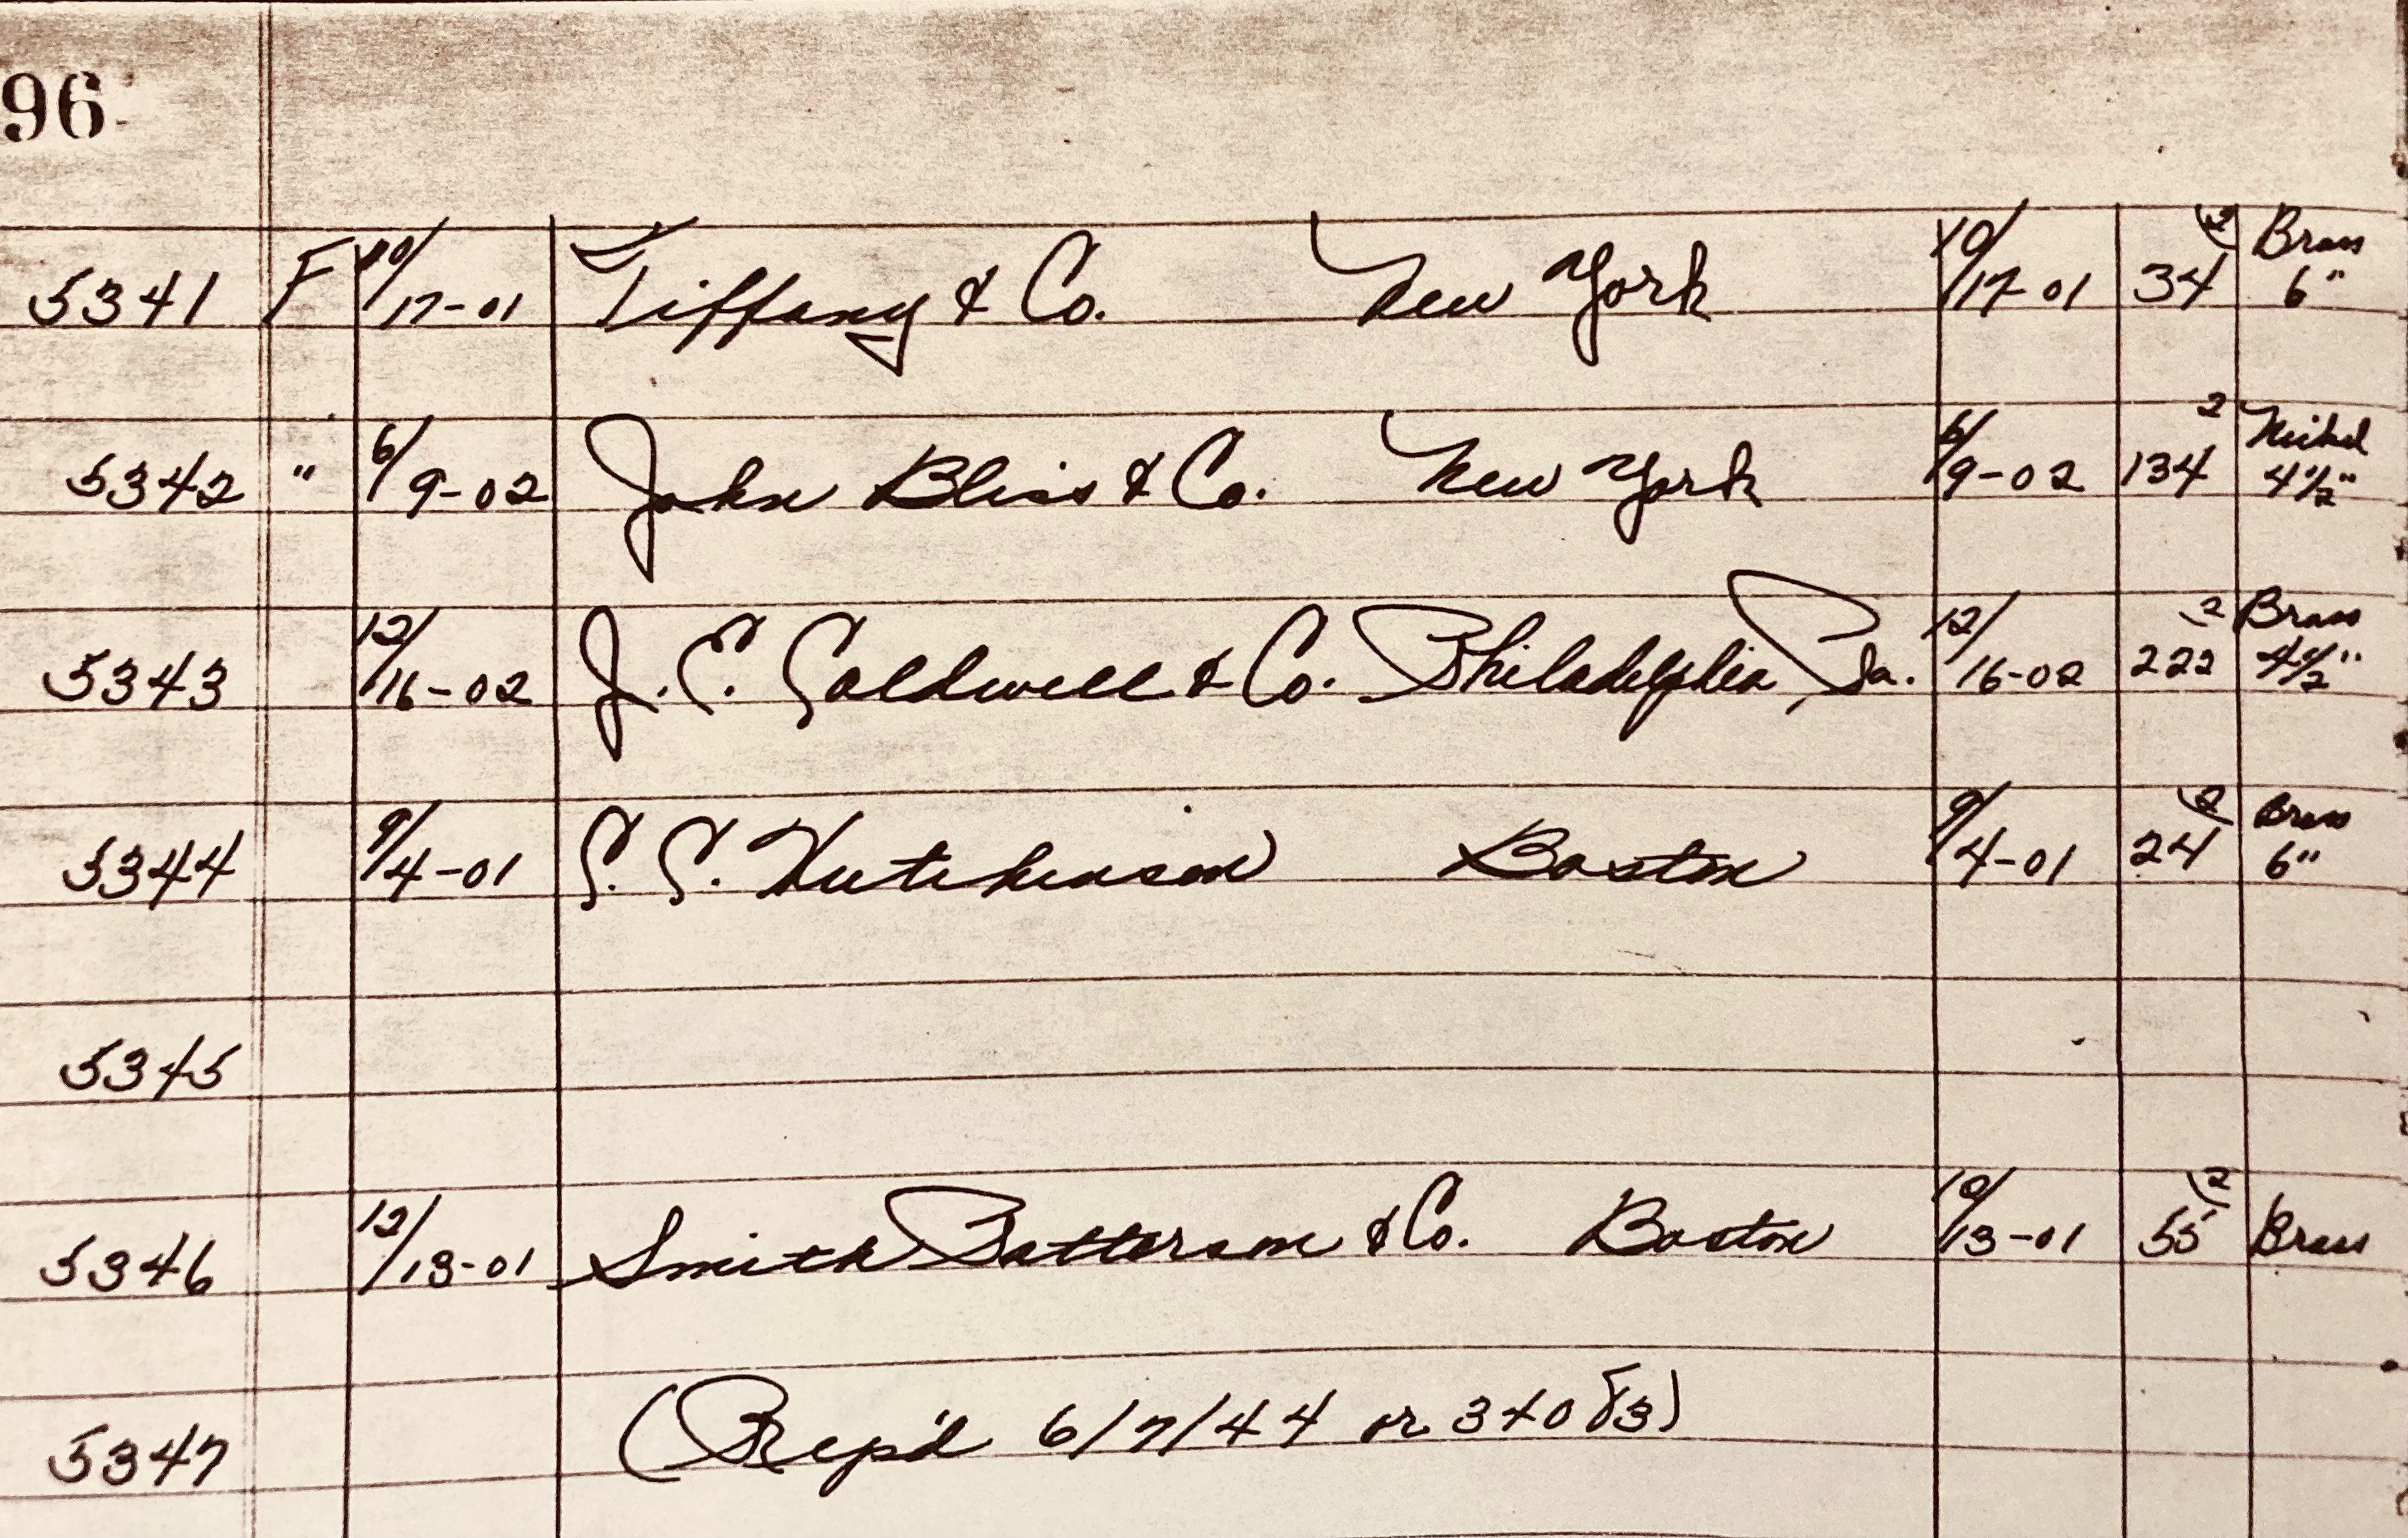 96
5341 F 10/17-01 Tiffany & Co. New York 10/17-01 34 2 Brass 6"
5342 " 6/9-02 John Bliss & Co. New York 6/9-02 134 2 Nickel 4 1/2"
5343 12/16-02 J. E. Caldwell & Co. Philadelphia, Pa. 12/16-02 222 2 Brass 4 1/2"
5344 9/4-01 Hutchinson Boston 9/4-01 24 2 Brass 6"
5345
5346 12/13-01 Smith Patterson & Co. Boston 10/13-01 55 2 Brass
5347 (Rep'd 6/7/44 or